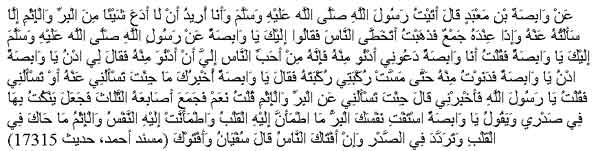 عَنْ وَابِصَةَ بْنِ مَعْبَدٍ قَالَ أَتَيْتُ رَسُولَ اللَّهِ صَلَّى اللَّهُ عَلَيْهِ وَسَلَّمَ وَأَنَا أُرِيدُ أَنْ لَا أَدَعَ شَيْئًا مِنَ الْبِرِّ وَالْإِثْمِ إِلَّا
سَأَلْتُهُ عَنْهُ وَإِذَا عِنْدَهُ جَمْعٌ فَذَهَبْتُ أَتَخَطَّى النَّاسَ فَقَالُوا إِلَيْكَ يَا وَابِصَةُ عَنْ رَسُولِ اللَّهِ صَلَّى اللَّهُ عَلَيْهِ وَسَلَّمَ
إِلَيْكَ يَا وَابِصَةُ فَقُلْتُ أَنَا وَابِصَةُ دَعُونِي أَدْنُو مِنْهُ فَإِنَّهُ مِنْ أَحَبِّ النَّاسِ إِلَيَّ أَنْ أَدْنُوَ مِنْهُ فَقَالَ لِي ادْنُ يَا وَابِصَةُ
ادْنُ يَا وَابِصَةُ فَدَنَوْتُ مِنْهُ حَتَّى مَسَّتْ رُكْبَتِي رُكْبَتَهُ فَقَالَ يَا وَابِصَةُ أُخْبِرُكَ مَا جِئْتَ تَسْأَلُنِي عَنْهُ أَوْ تَسْأَلُنِي
فَقُلْتُ يَا رَسُولَ اللَّهِ فَأَخْبِرْنِي قَالَ جِئْتَ تَسْأَلُنِي عَنِ الْبِرِّ وَالْإِثْمِ قُلْتُ نَعَمْ فَجَمَعَ أَصَابِعَهُ الثَّلَاثَ فَجَعَلَ يَنْكُتُ بِهَا
فِي صَدْرِي وَيَقُولُ يَا وَابِصَةُ اسْتَفْتِ نَفْسَكَ الْبِرُّ مَا اطْمَأَنَّ إِلَيْهِ الْقَلْبُ وَاطْمَأَنَّتْ إِلَيْهِ النَّفْسُ وَالْإِثْمُ مَا حَاكَ فِي
الْقَلْبِ وَتَرَدَّدَ فِي الصَّدْرِ وَإِنْ أَفْتَاكَ النَّاسُ قَالَ سُفْيَانُ وَأَفْتَوْكَ (مسند أحمد، حديث 17315)